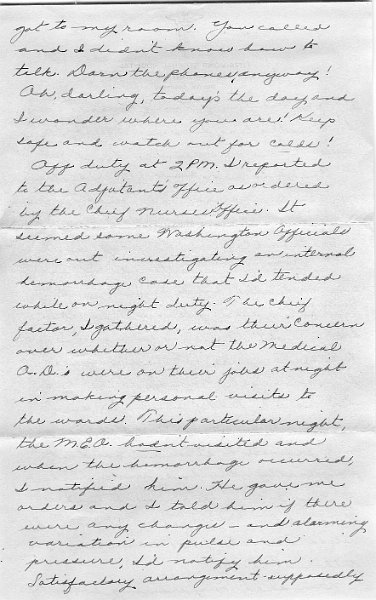 got to my room. You called
and I didn't know how to
talk. Darn the phones, anyway!
Oh, darling, today's the day and
I wonder where you are! Keep
safe and watch out for colds!
Off duty at 2 P.M. I reported
to the Adjutant's Office as ordered
by the Chief Nurses' Office. It
seemed some Washington Officials
were out investigating an internal
hemorrhage case that I'd tended
while on night duty. The chief
factor, I gathered, was their concern
over whether or not the Medical
O.D.'s were on their jobs at night
in making personal visits to
the wards. This particular night,
the M.E.O. hadn't visited and
when the hemorrhage occurred,
I notified him. He gave me
orders and I told him if there
were any changes - and alarming
variation in pulse and
pressure, I'd notify him.
Satisfactory arrangement supposedly